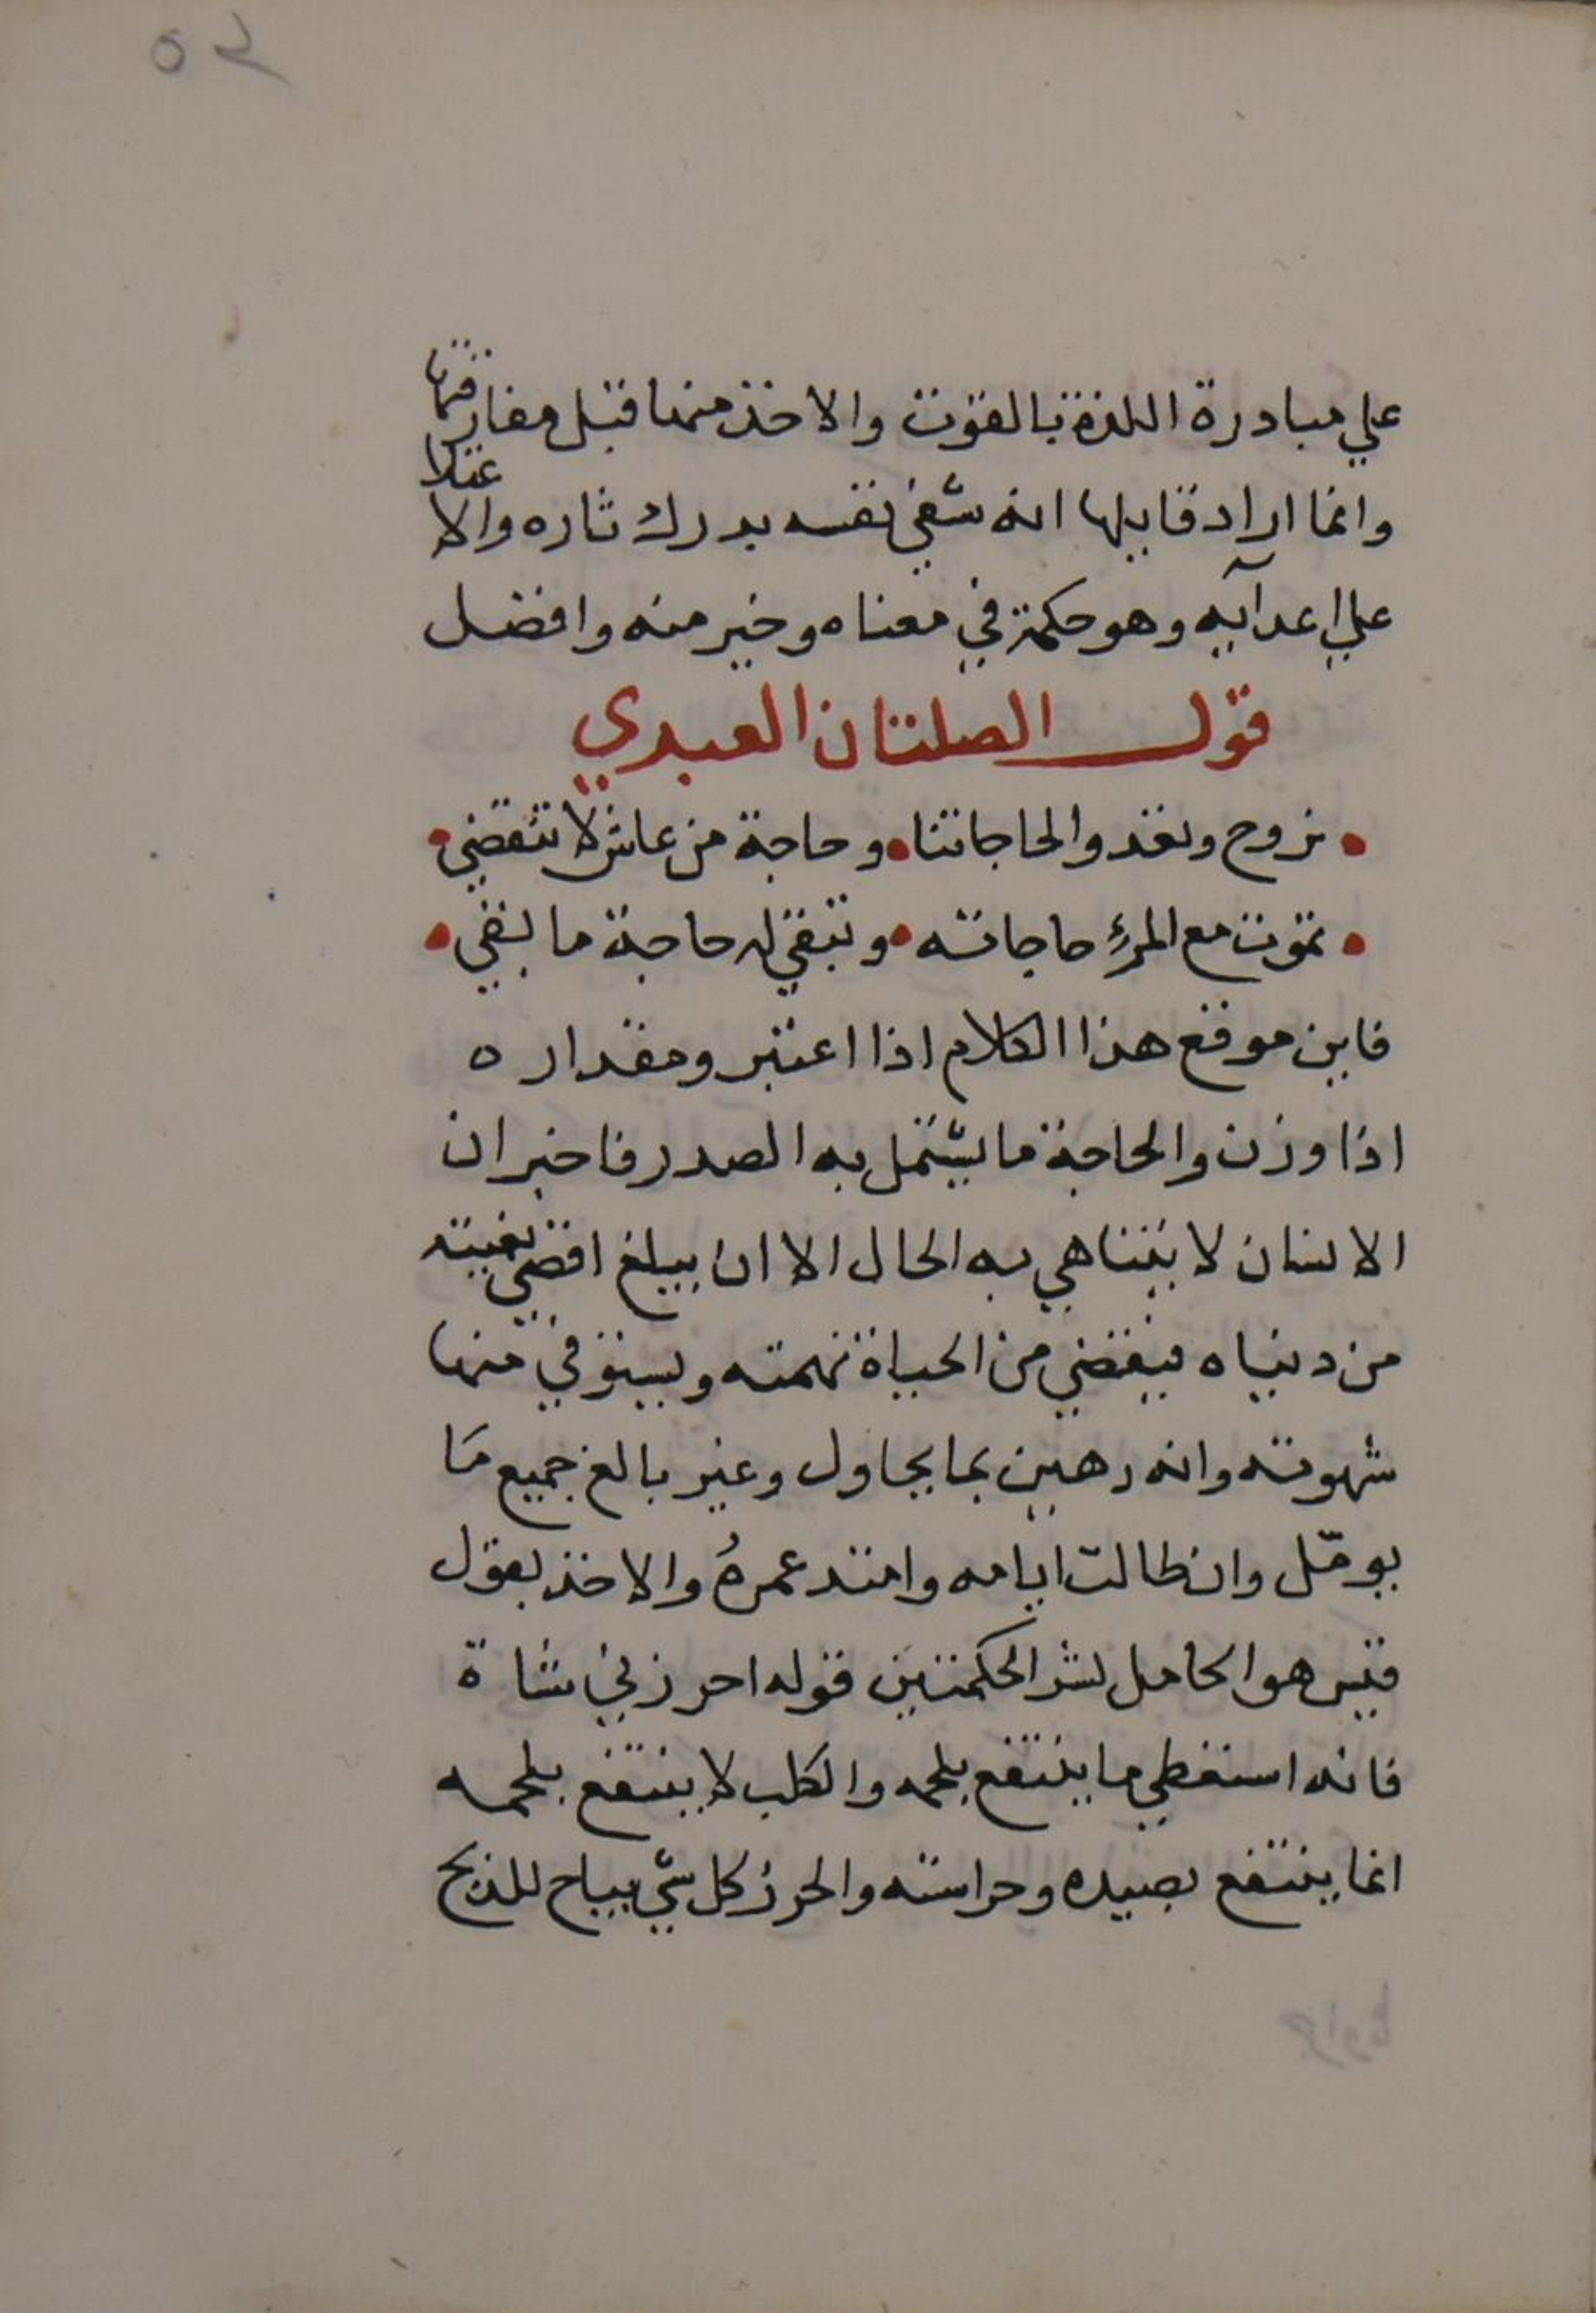 ٥٢
علي مبادرة اللذة بالقوت والاخذ منها قبل مفارقتها
وانما اراد قايلها انه شفي نفسه بدرك ثاره والاعتلا
علي اعدآيه وهو حكمة في معناه وخير منه وافضل
قول الصلتان العبدي
نروح ونغدو الحاجاتنا • وحاجة من عاش لا تنقضي •
• تموت مع المرءِ حاجاته • وتبقي له حاجة ما بقي •
فاين موقع هذا الكلام اذا اعتبر ومقداره
اذا وزن والحاجة ما يشتمل به الصدر فاخبر ان
الانسان لا يتناهي به الحال الا ان يبلغ اقصي بغيته
من دنياه فيقضي من الحياة نهمته ويستوفي منها
شهوته وانه رهين بما يحاول وغير بالغ جميع مَا
يومّل وان طالت ايامه وامتد عمرهُ والاخذ بقول
قيس هو الحامل لشر الحكمتين قوله احرزني شاة
فانه استغطي ما ينتفع بلحمه والكلب لا ينتفع بلحمه
انما ينتفع بصيده وحراسته والحرز كل شي يباح للذبح